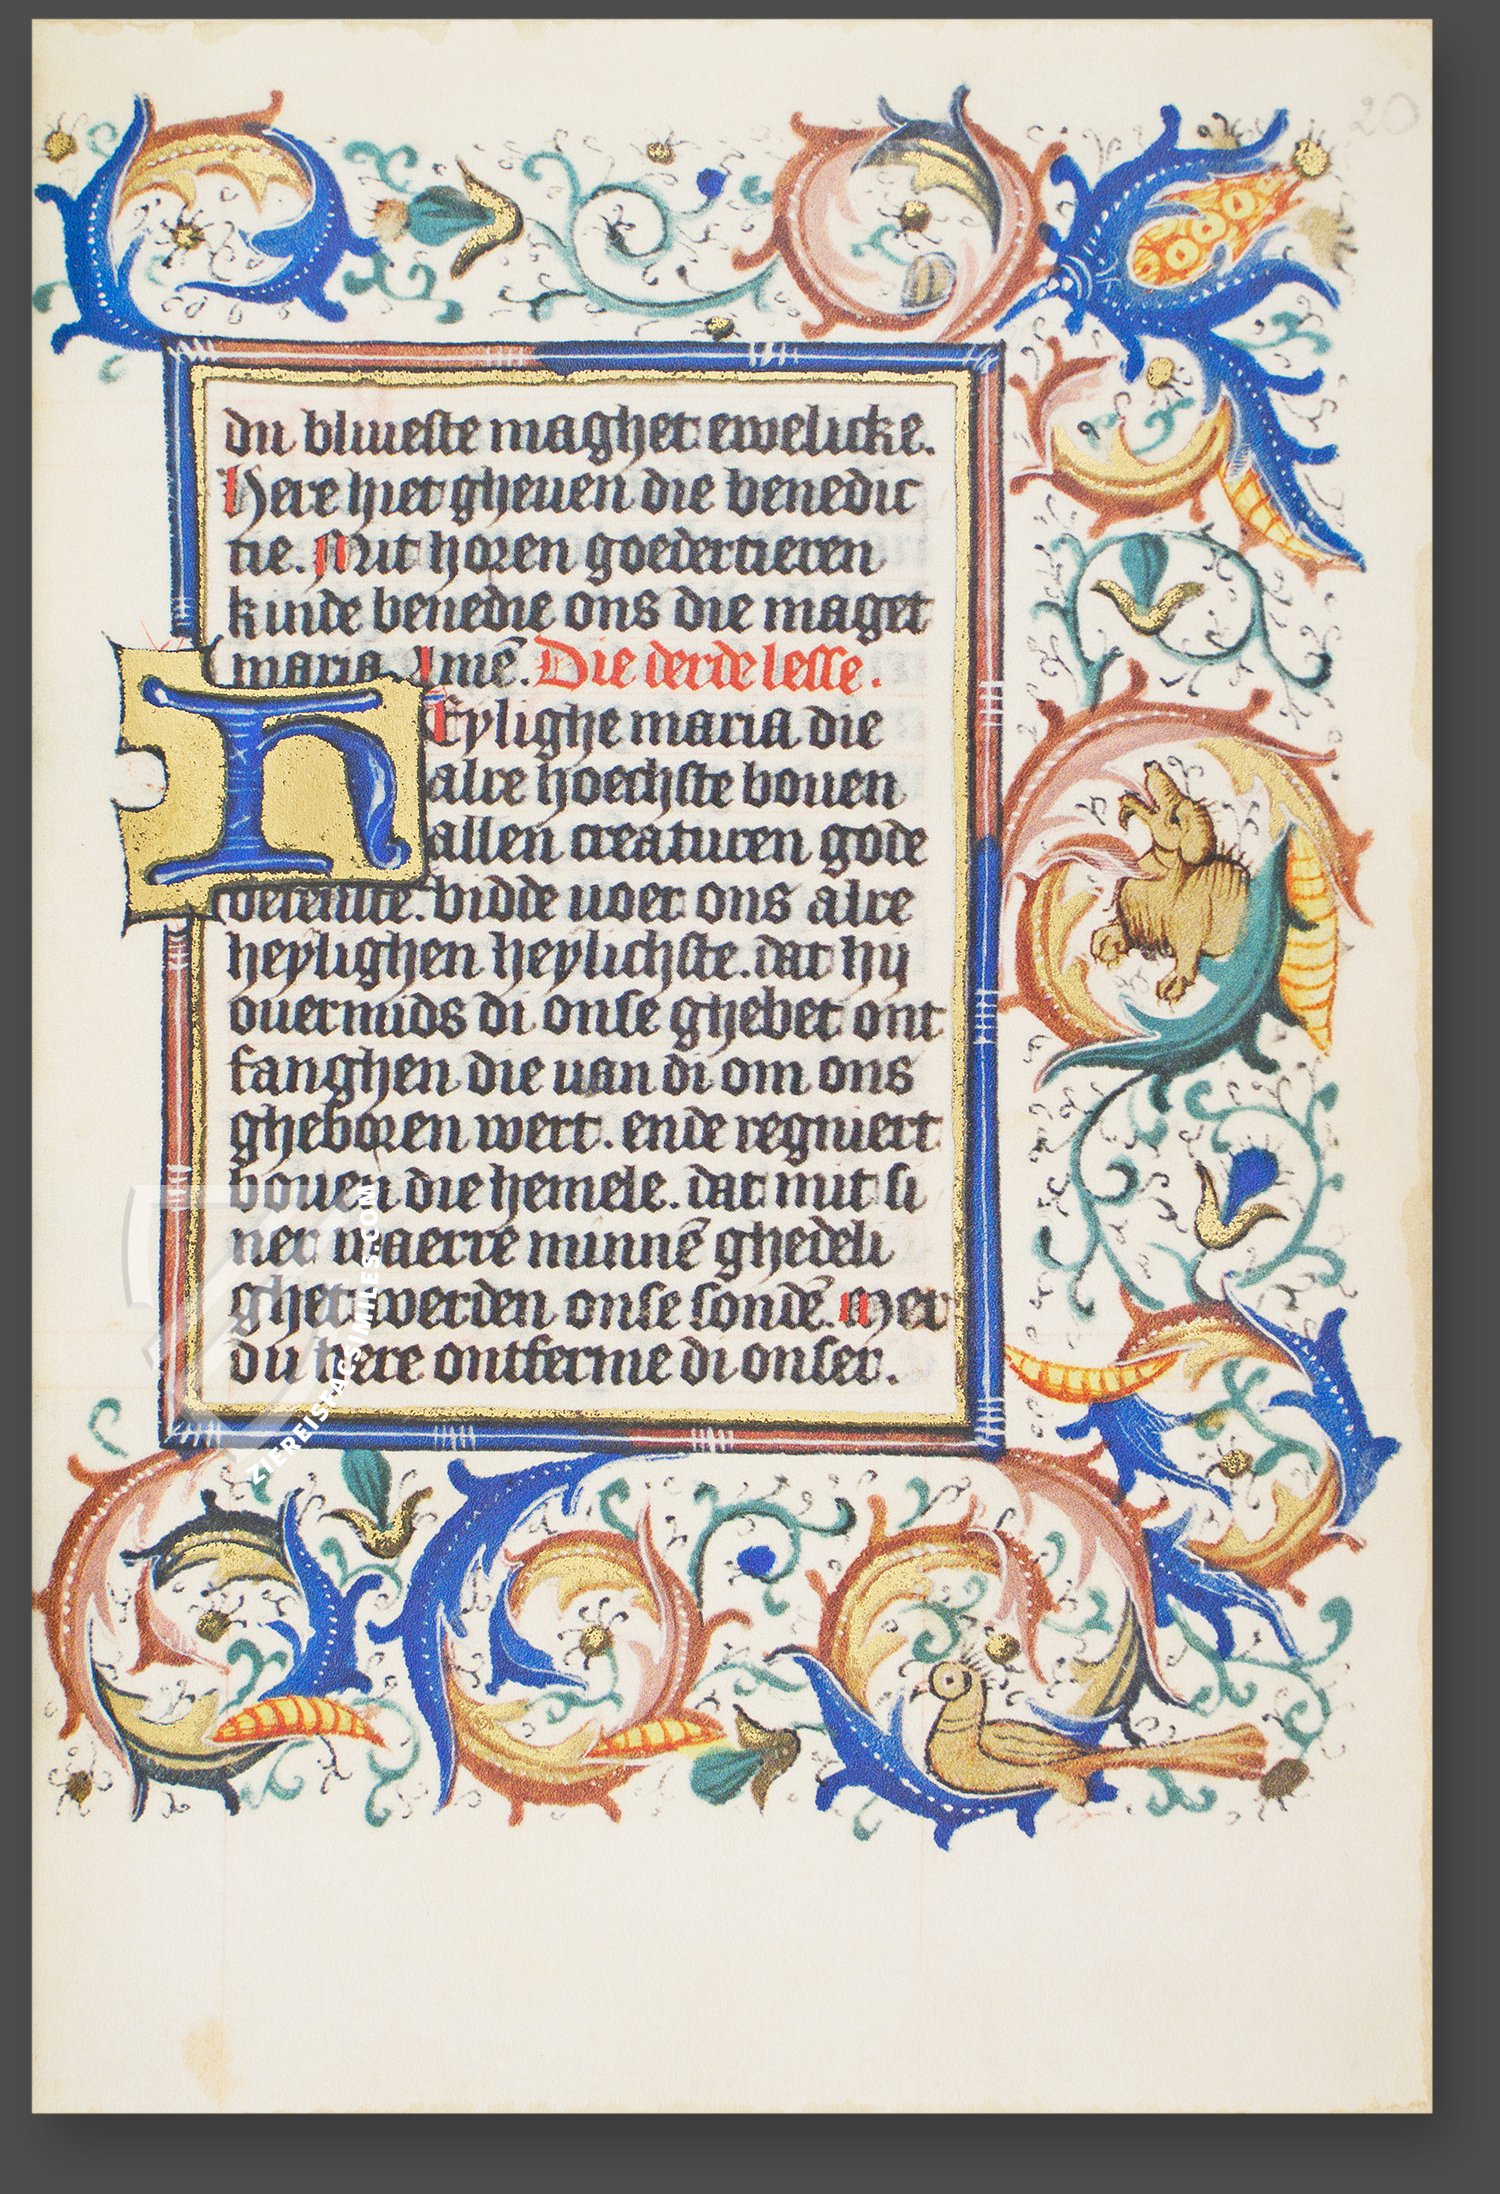 20
du bliueste maghet ewelicke.
Here hiet gheuen die benedic
tie. Mit horen goedertieren
kinde benedie ons die maget
maria. Amē. Die derde lesse.
HEylighe maria die
alre hoechste bouen
allen creaturen gode
bidde uoer ons alre
heylighen heylichste. dat hij
ouermids di onse ghebet ont
fanghen die uan di om ons
gheboren wert. ende regniert
bouen die hemele. dat mit si
ner maerre minnē ghedeli
ghet werden onse sondē. Mer
du here ontferme di onser.
ZIEREIS FACSIMILES.COM